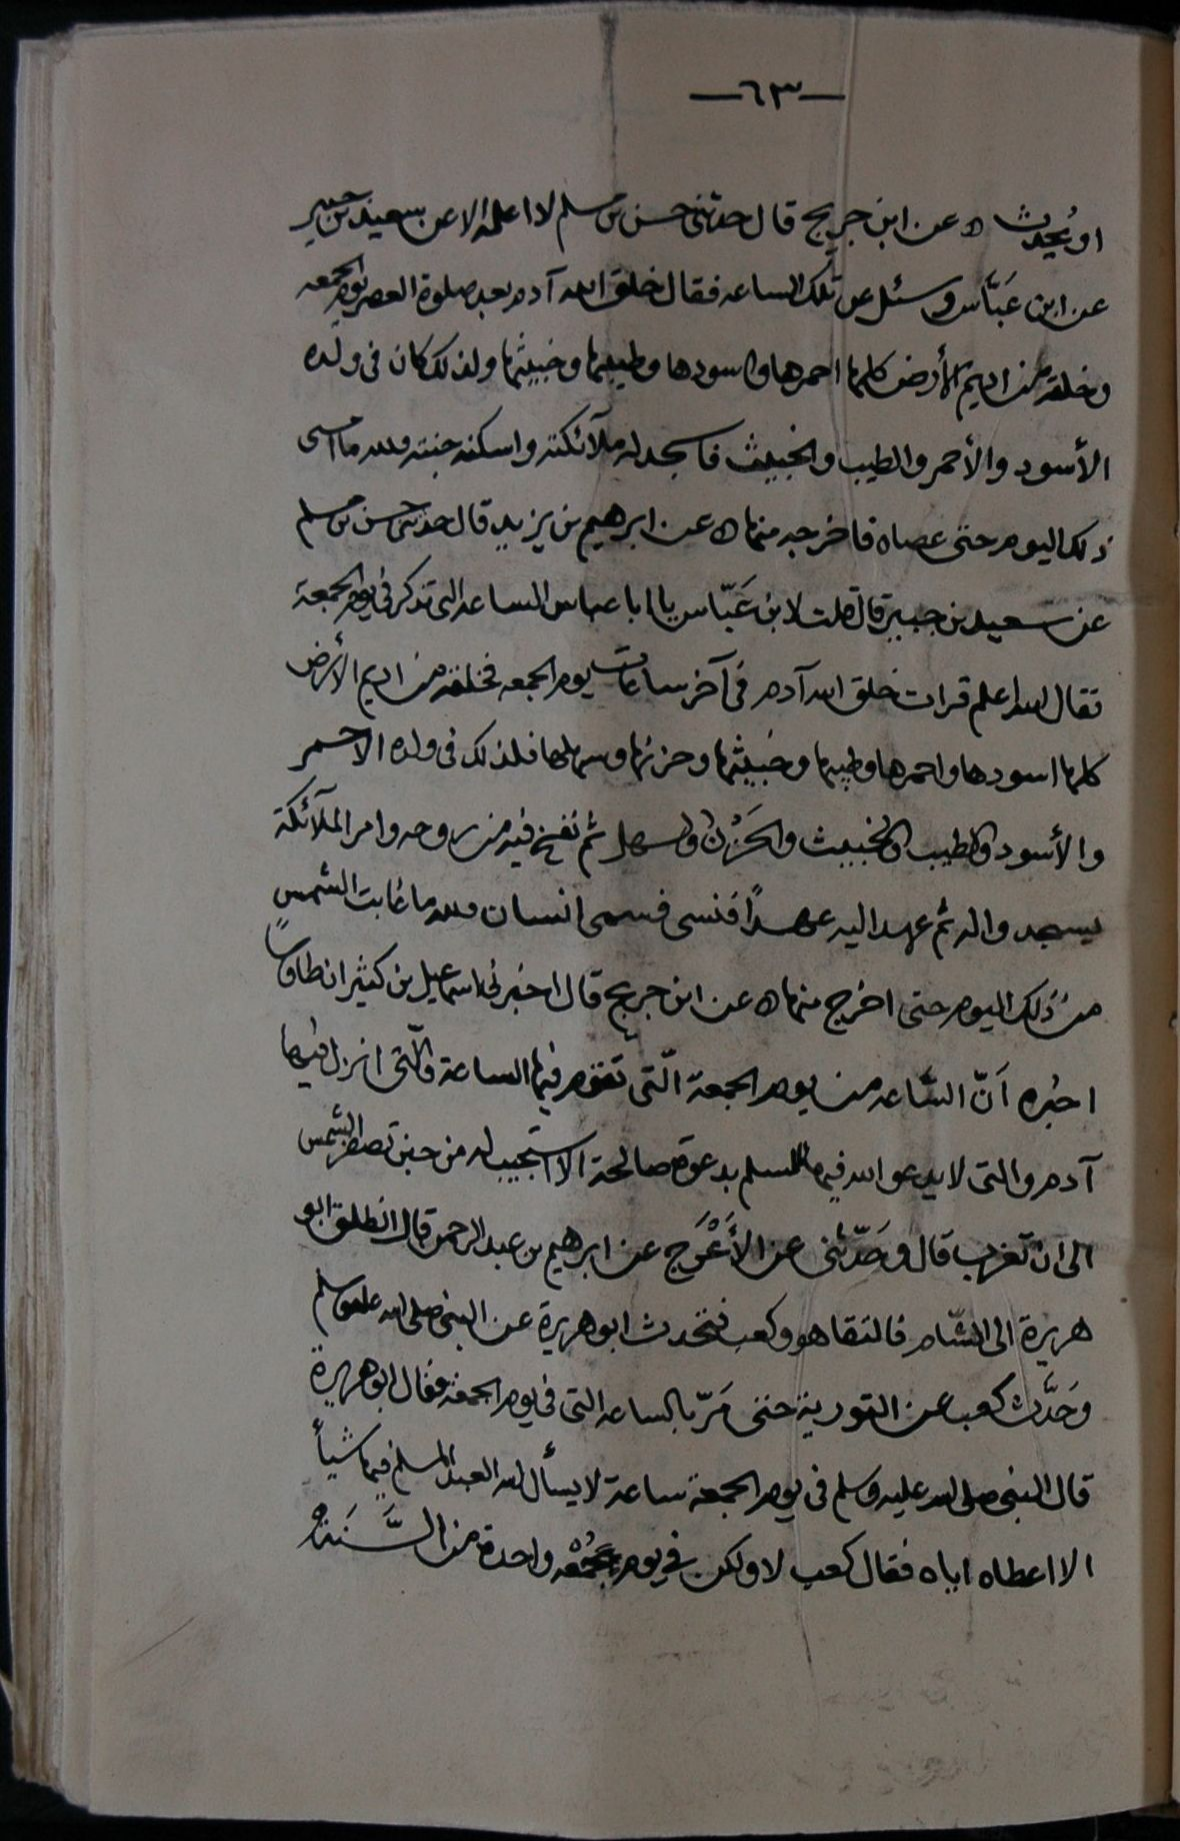 —٦٣—
او يُحدث ه عن ابن جريج قال حدثني حسن بن مسلم لا اعلمه الا عن سعيد بن جبير
عن ابن عَبَّاس وسئل عن تلك الساعه فقال خلق الله آدم بعد صلوة العصر يوم الجمعه
وخلقه من اديم الأرض كلها احمرها واسودها وطيبها وخبيثها ولذلك كان فى ولده
الأسود والأحمر والطيب والخبيث فاسجد له ملآئكته واسكنه جنته فلله ما امسى
ذلك اليوم حتى عصاه فاخرجه منها ه عن ابرهيم بن يزيد قال حدثنى حسن بن مسلم
عن سعيد بن جبير قال قلت لابن عَبّاس يا ابا عباس الساعه التى تذكر فى يوم الجمعة
فقال الله اعلم قرات خلق الله آدم فى آخر ساعات يوم الجمعه فخلقه من اديم الأرض
كلها اسودها واحمرها وطيبها وخبيثها وحزنها وسهلها فلذلك فى ولده الاحمر
والأسود والطيب والخبيث والحَزْن والسهل ثم نفخ فيه من روحه وامر الملآئكة
يسجدوا له ثم عهد اليه عهدًا فنسى فسمى انسان فلله ما غابت الشمس
من ذلك اليوم حتى اخرج منها ه عن ابن جريج قال اخبرنى اسماعيل بن كثير ان طاوسا
اخبره اَنّ السّاعه من يوم الجمعة الّتى تقوم فيها الساعة والّتى انزل فيها
آدم والتى لا يدعو الله فيها المسلم بدعوة صالحة الا استجيب له من حين تصفر الشمس
الى ان تغرب قال وحَدّثنى عن الأَعْرَج عن ابرهيم بن عبد الرحمن قال انطلق ابو
هريرة الى الشّام فالتقا هو وكعب فتحدث ابو هريرة عن النبى صلى الله عليه وسلم
وحَدَّث كعب عن التورية حتى مَرّ بالساعه التى فى يوم الجمعة فقال ابو هريرة
قال النبى صلى الله عليه وسلم فى يوم الجمعة ساعة لا يسأل الله العبد المسلم فيها شيأً
الا اعطاه اياه فقال كعب لا ولكن فى يوم جُمْعه واحدة من السَّنَة